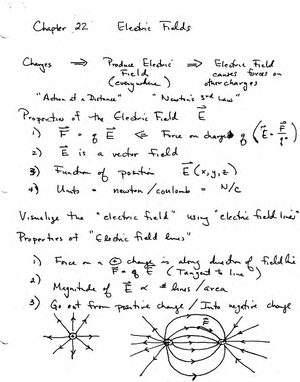 Chapter 22 Electric Fields
Charges ⇒ Produce Electric Field (everywhere) ⇒ Electric Field causes forces on other charges
"Action at a Distance" "Newton's 3rd Law"
Properties of the Electric Field E⃗
1) F⃗ = q E⃗ ⇐ Force on charge q (E⃗ = F⃗/q)
2) E⃗ is a vector field
3) Function of position E⃗(x,y,z)
4) Units = newton/coulomb = N/C
Visualize the "electric field" using "electric field lines"
Properties of "Electric field lines"
1) Force on a ⊕ charge is along direction of field line
F⃗ = q E⃗ (Tangent to line)
2) Magnitude of E⃗ ∝ # lines/area
3) Go out from positive charge / Into negative charge